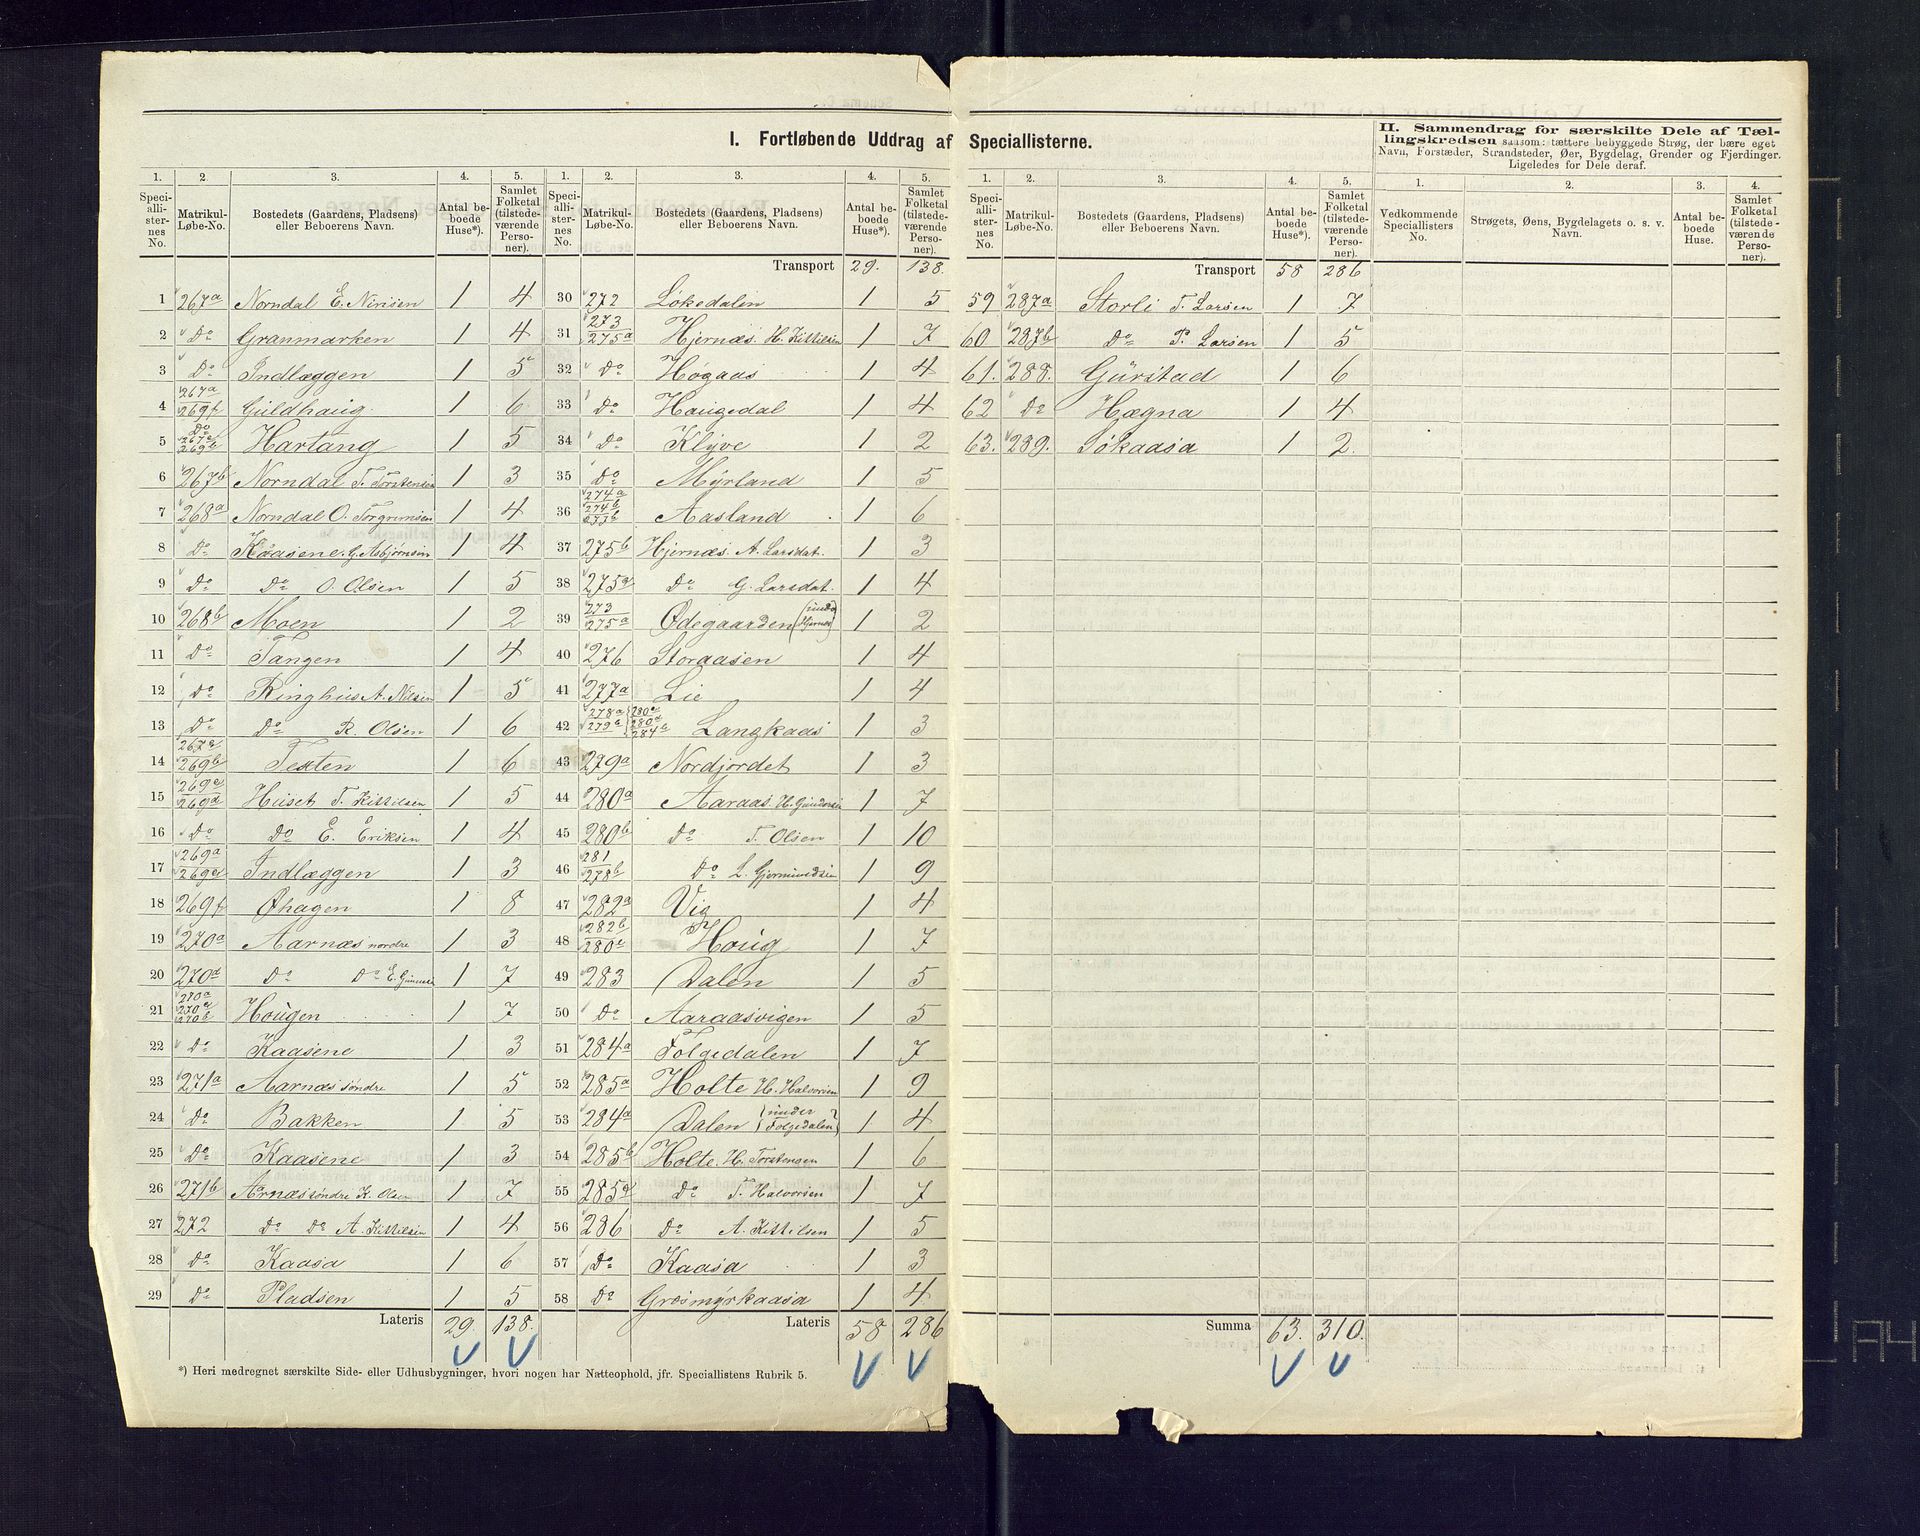 I. Fortløbende Uddrag af Speciallisterne.
II. Sammendrag for særskilte Dele af Tællingskredsen saasom: tættere bebyggede Strøg, der bære eget Navn, Forstæder, Strandsteder, Øer, Bygdelag, Grender og Fjerdinger. Ligeledes for Dele deraf.
1. 2. 3. 4. 5. 1. 2. 3. 4. 5. 1. 2. 3. 4. 5. 1. 2. 3. 4.
Speciallisternes No. Matrikul-Løbe-No. Bostedets (Gaardens, Pladsens) eller Beboerens Navn. Antal beboede Huse*). Samlet Folketal (tilstedeværende Personer).
Speciallisternes No. Matrikul-Løbe-No. Bostedets (Gaardens, Pladsens) eller Beboerens Navn. Antal beboede Huse*). Samlet Folketal (tilstedeværende Personer).
Speciallisternes No. Matrikul-Løbe-No. Bostedets (Gaardens, Pladsens) eller Beboerens Navn. Antal beboede Huse*). Samlet Folketal (tilstedeværende Personer).
Vedkommende Speciallisters No. Strøgets, Øens, Bygdelagets o. s. v. Navn. Antal beboede Huse. Samlet Folketal (tilstedeværende Personer).
1 267a Norndal E. Nirisen 1 4
2 Do Granmarken 1 4
3 Do Indlæggen 1 5
4 267a 269f Guldhaug 1 6
5 Do 267e 269b Hartang 1 5
6 267b Norndal T. Torstensen 1 3
7 268a Norndal O. Torgrimsen 1 4
8 Do Kaasene G. Asbjørnsen 1 4
9 Do Do O. Olsen 1 5
10 268b Moen 1 2
11 Do Tangen 1 4
12 Do Ringhus A. Nilsen 1 5
13 Do Do R. Olsen 1 6
14 267e 269b Texten 1 6
15 269c 269d Huset T. Kittilsen 1 5
16 Do Do E. Eriksen 1 4
17 269a 269e Indlæggen 1 3
18 269f Øhagen 1 8
19 270a Aarnæs nordre 1 3
20 270d Do Do E. 1 7
21 270a 270c 270b Hougen 1 7
22 Do Kaasene 1 3
23 271a Aarnæs søndre 1 5
24 Do Bakken 1 5
25 Do Kaasene 1 3
26 271b Aarnæs søndre K. Olsen 1 7
27 272 Do Do A. Kittilsen 1 4
28 Do Kaasa 1 6
29 Do Pladsen 1 5
Lateris 29. 138.
Transport 29. 138.
30 272 Lökedalen 1 5
31 273 275a Hjernæs. H. Kittilsen 1 7
32 Do Høgaas 1 4
33 Do Haugedal 1 4
34 Do Klyve 1 2
35 Do Myrland 1 5
36 274a 274b 277b Aasland 1 6
37 275b Hjernæs. A. Larsdat. 1 3
38 275a Do G. Larsdat. 1 4
39 273 275a Ødegaarden (under Hjernæs) 1 2
40 276 Storaasen 1 4
41 277a Lie 1 4
42 278a 279b 280c 280a 284b Langkaas 1 3
43 279a Nordjordet 1 3
44 280a Aaraas H. Gundersen 1 7
45 280b Do T. Olsen 1 10
46 281 278b Do L. Gjermundsen 1 9
47 282a Vig 1 4
48 282b 280c Houg 1 7
49 283 Dalen 1 5
50 Do Aaraasvigen 1 5
51 284a Folgedalen 1 7
52 285a Holte H. Halvorsen 1 9
53 284a Dalen (under Folgedalen) 1 4
54 285b Holte. H. Torstensen 1 6
55 285a Do T. Halvorsen 1 7
56 286 Do A. Kittilsen 1 5
57 Do Kaasa 1 3
58 Do Græsmyrkaasa 1 4
Lateris 58 286
Transport 58 286
59 287a Storli T. Larsen 1 7
60 287b Do P. Larsen 1 5
61. 288. Gurstad 1 6
62 Do Hægna 1 4
63. 289. Løkaasa 1 2.
Summa 63. 310.
*) Heri medregnet særskilte Side- eller Udhusbygninger, hvori nogen har Natteophold, jfr. Speciallistens Rubrik 5.